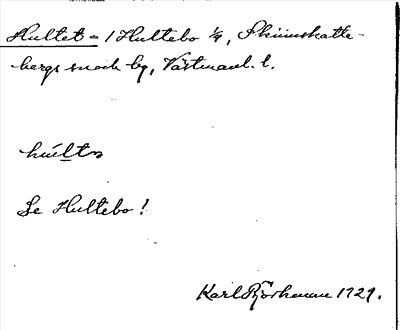 Hultet = / Hultebo 1/4, Skinnskatte-
bergs sock by, Västmanl. l.
hu̇ltə
Se Hultebo!
Karl Björkman 1929.